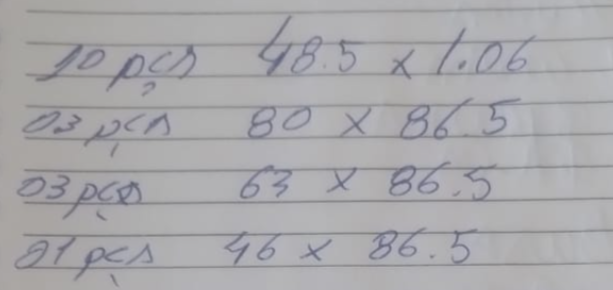 10 pçs 48.5 x 1.06
03 pçs 80 x 86.5
03 pçs 63 x 86.5
01 pçs 46 x 86.5